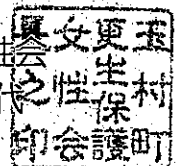 会
玉村町
更生保護
女性会
長之印